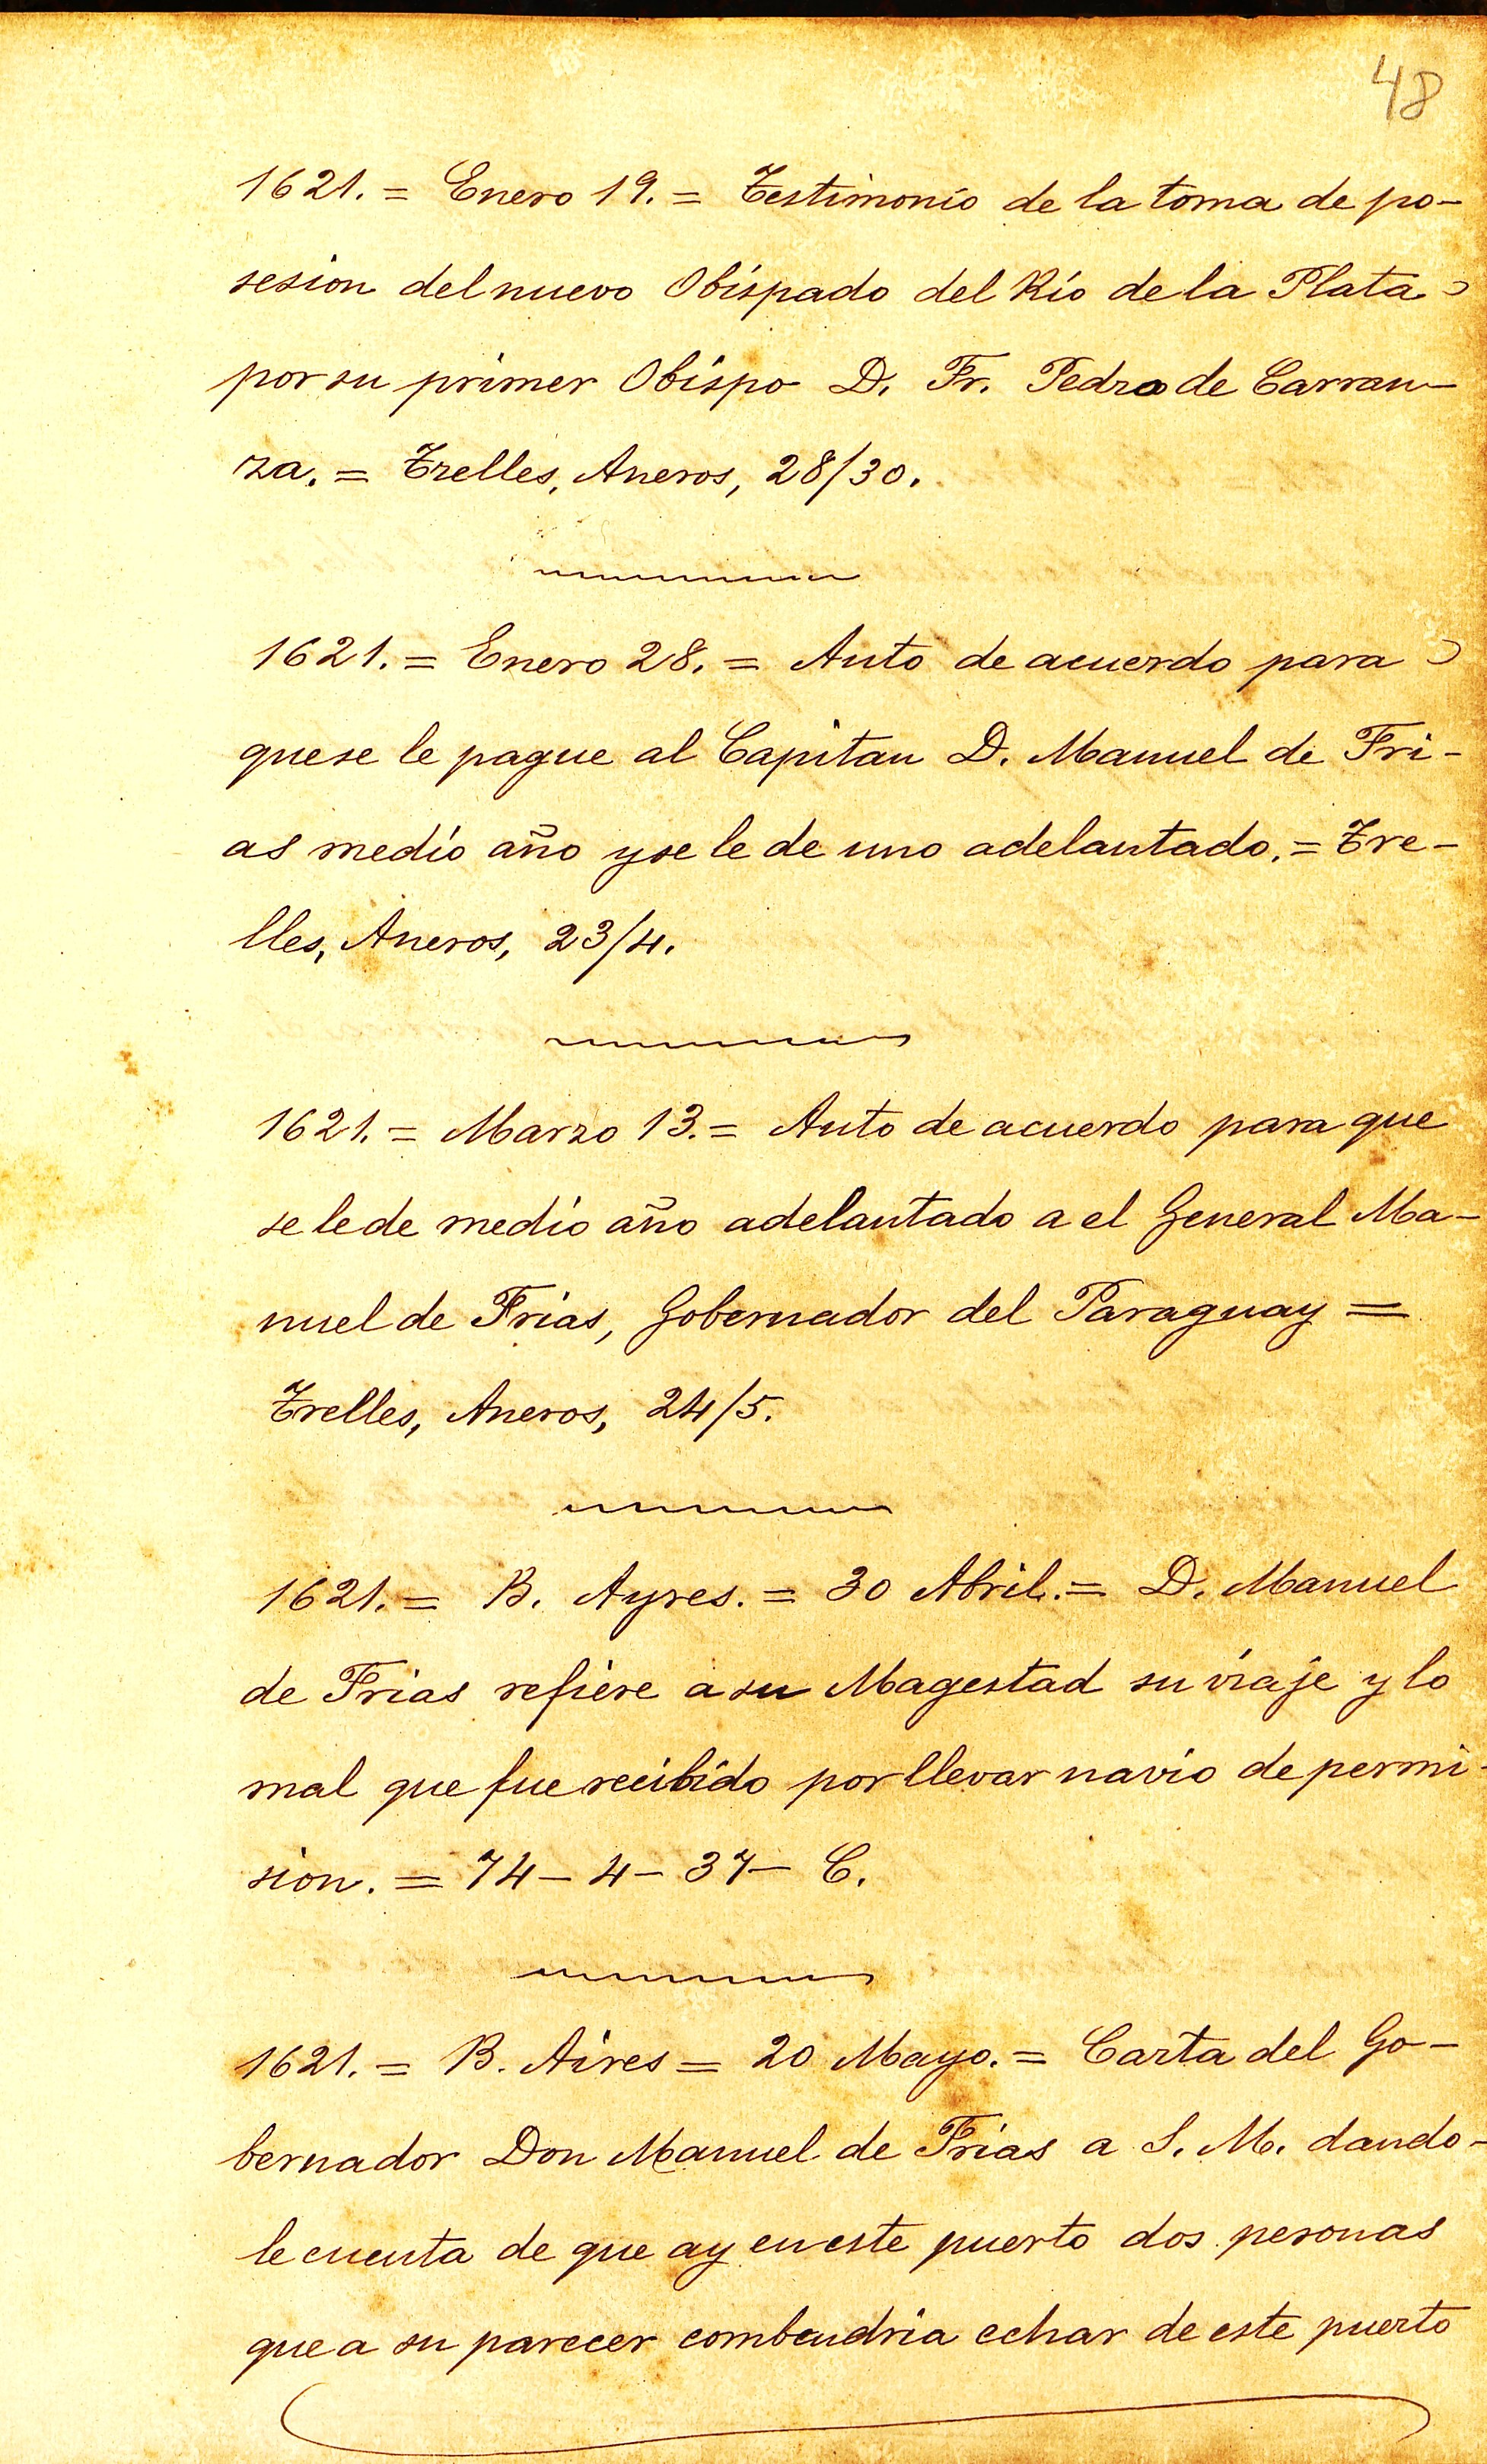 48
1621. = Enero 19. = Testimonio de la toma de po-
sesion del nuevo Obispado del Río de la Plata
por su primer Obispo D. Fr. Pedro de Carran-
za. = Trelles, Aneros, 28/30.
1621. = Enero 28. = Auto de acuerdo para
que se le pague al Capitan D. Manuel de Fri-
as medio año y se le de uno adelantado. = Tre-
lles, Aneros, 23/4.
1621. = Marzo 13. = Auto de acuerdo para que
se le de medio año adelantado a el General Ma-
nuel de Frias, Gobernador del Paraguay =
Trelles, Aneros, 24/5.
1621. = B. Ayres. = 30 Abril. = D. Manuel
de Frias refiere a su Magestad su viaje y lo
mal que fue recibido por llevar navio de permi-
sion. = 74 - 4 - 37 - C.
1621. = B. Aires = 20 Mayo. = Carta del Go-
bernador Don Manuel de Frias a S. M. dando-
le cuenta de que ay en este puerto dos personas
que a su parecer combendria echar de este puerto